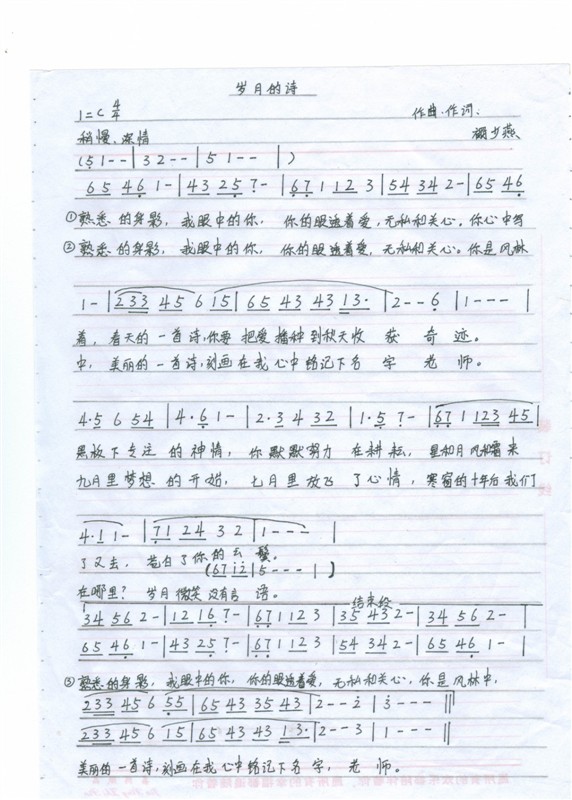 岁月的诗
1=C 4/4 作曲.作词:
稍慢、深情 少燕
(5 1--|32--|51--|)
65 461-|43 257-|671123|54342-|65 46
①熟悉的身影,我眼中的你,你的眼透着爱,无私和关心。你心中写
②熟悉的身影,我眼中的你,你的眼透着爱,无私和关心。你是风林
1-|233 45 6 15|65 43 43 13·|2--6|1---|
着,春天的一首诗,你要把爱播种到秋天收获奇迹。
中,美丽的一首诗,刻画在我心中铭记下名字老师。
4·5 6 54|4·6 1-|2·3 4 32|1·5 7-|67 1 123 45|
黑板下专注的神情,你默默努力在耕耘,星和月风和霜来
九月里梦想的开始,七月里放飞了心情,寒窗的十年后我们
4·1 1-|71 24 3 2|1---|
了又去,苍白了你的云鬓。
(67 12|5---|)
在哪里?岁月微笑没有言语。
结束段
34 56 2-|12 16 7-|67 11 2 3|35 43 2-|34 56 2-|
65 46 1-|43 25 7-|67 11 2 3|54 34 2-|65 46 1-|
③熟悉的身影,我眼中的你,你的眼透着爱,无私和关心,你是风林中,
233 45 6 55|65 43 35 43|2--2|1---‖
233 45 6 15|65 43 43 13·|2--3|1---‖
美丽的一首诗,刻画在我心中铭记下名字,老师。